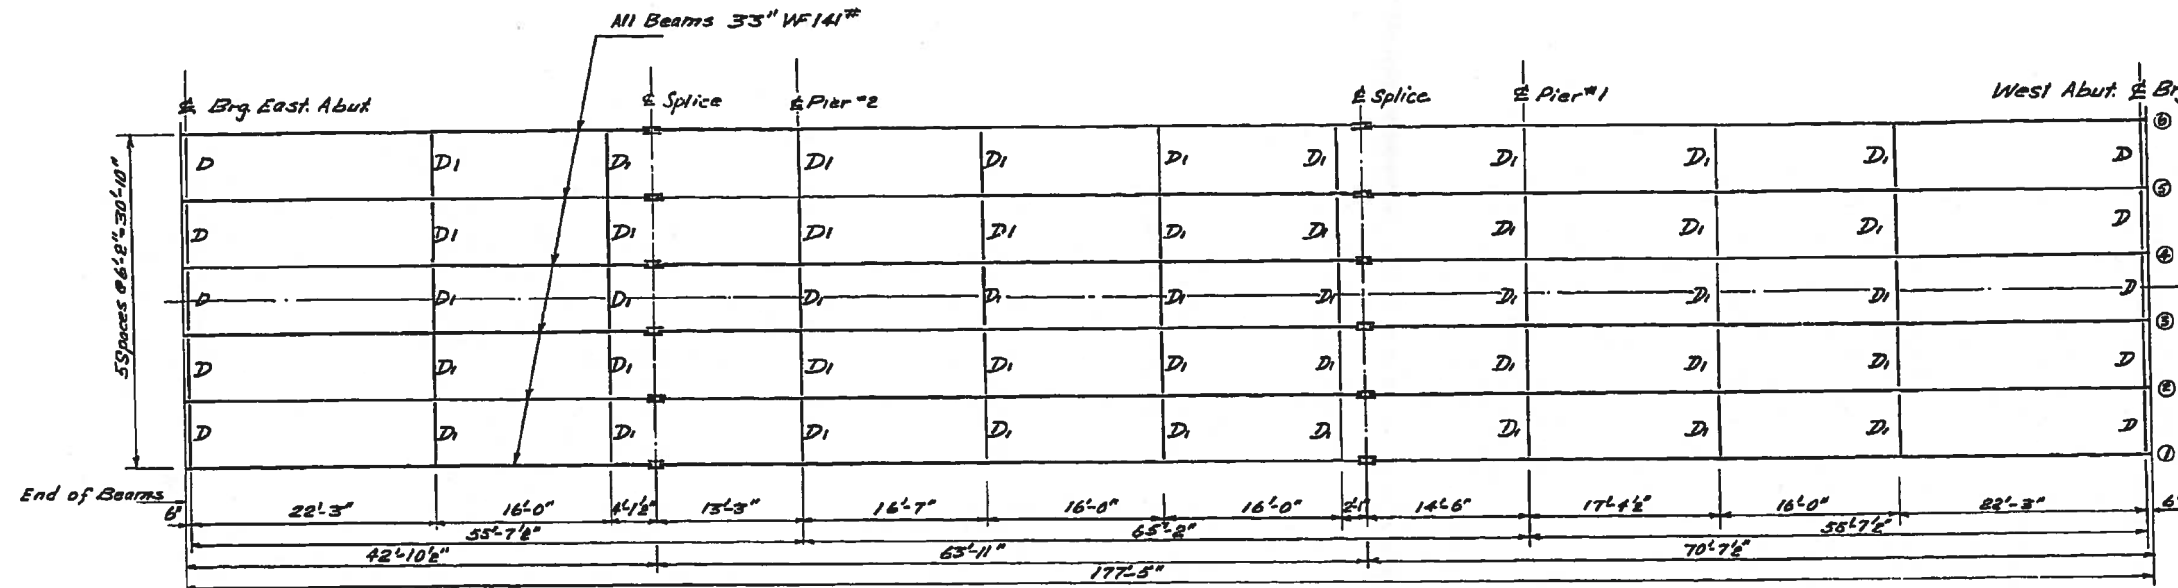 All Beams 33" WF 141#
₵ Brg. East. Abut.
₵ Splice
₵ Pier #2
₵ Splice
₵ Pier #1
West Abut. ₵ Brg
5 Spaces @ 6'-2" = 30'-10"
⑥
D D1 D1 D1 D1 D1 D1 D1 D1 D1 D
⑤
D D1 D1 D1 D1 D1 D1 D1 D1 D1 D
④
D D1 D1 D1 D1 D1 D1 D1 D1 D1 D
③
D D1 D1 D1 D1 D1 D1 D1 D1 D1 D
②
D D1 D1 D1 D1 D1 D1 D1 D1 D1 D
①
End of Beams
6" 22'-3" 16'-0" 4'-1½" 13'-3" 16'-7" 16'-0" 16'-0" 2'-1" 14'-6" 17'-4½" 16'-0" 22'-3" 6"
55'-7½" 65'-2" 55'-7½"
42'-10½" 63'-11" 70'-7½"
177'-5"